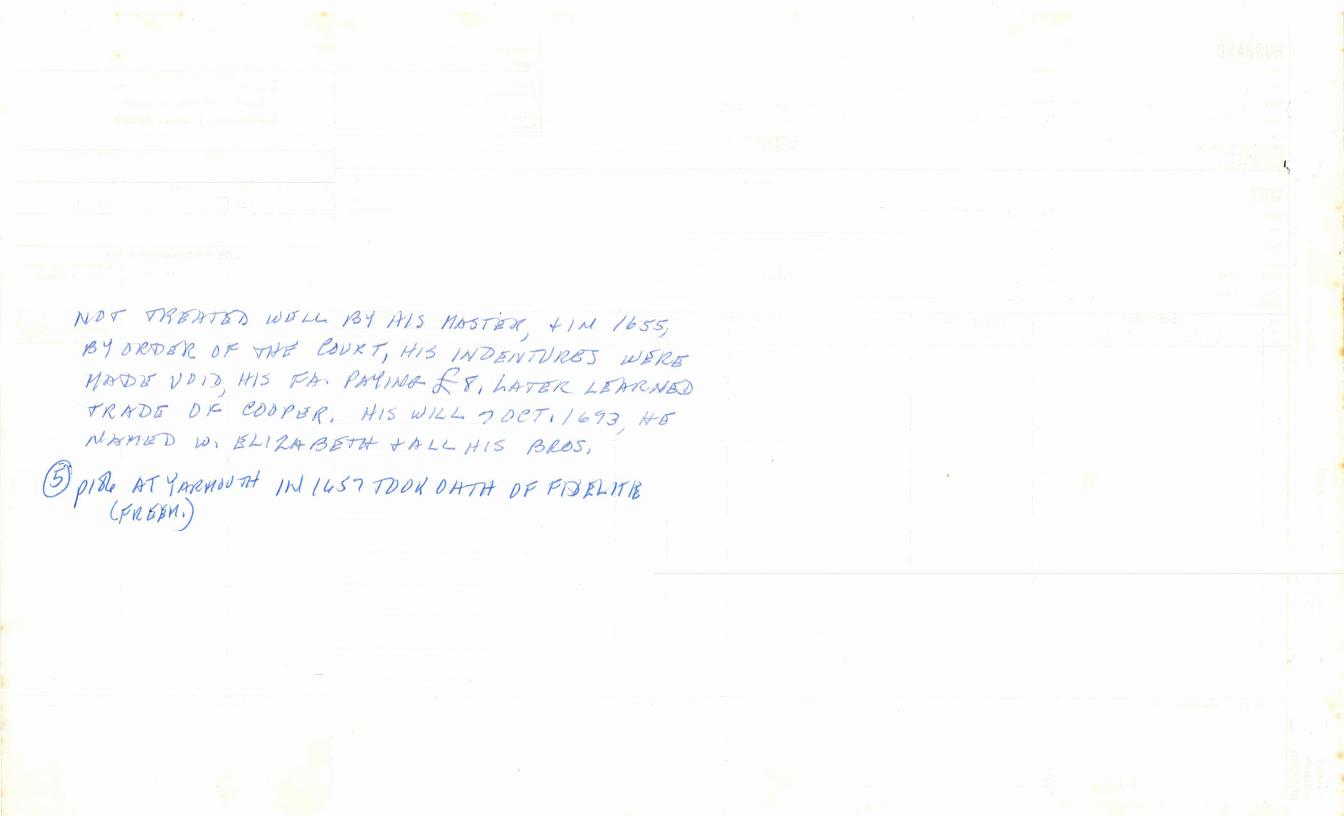 NOT TREATED WELL BY HIS MASTER, + IN 1655,
BY ORDER OF THE COURT, HIS INDENTURES WERE
MADE VOID, HIS FA. PAYING £8. LATER LEARNED
TRADE OF COOPER. HIS WILL 7 OCT. 1693, HE
NAMED W. ELIZABETH + ALL HIS BROS.
⑤ p186 AT YARMOUTH IN 1657 TOOK OATH OF FIDELITIE
(FREEM.)